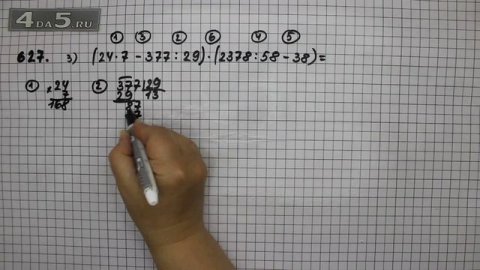 4DA5.RU
① ③ ② ⑥ ④ ⑤
627. 3) (24·7 - 377:29)·(2378:58-38)=
① × 24 ② 377 | 29
7 29 13
168 87
87